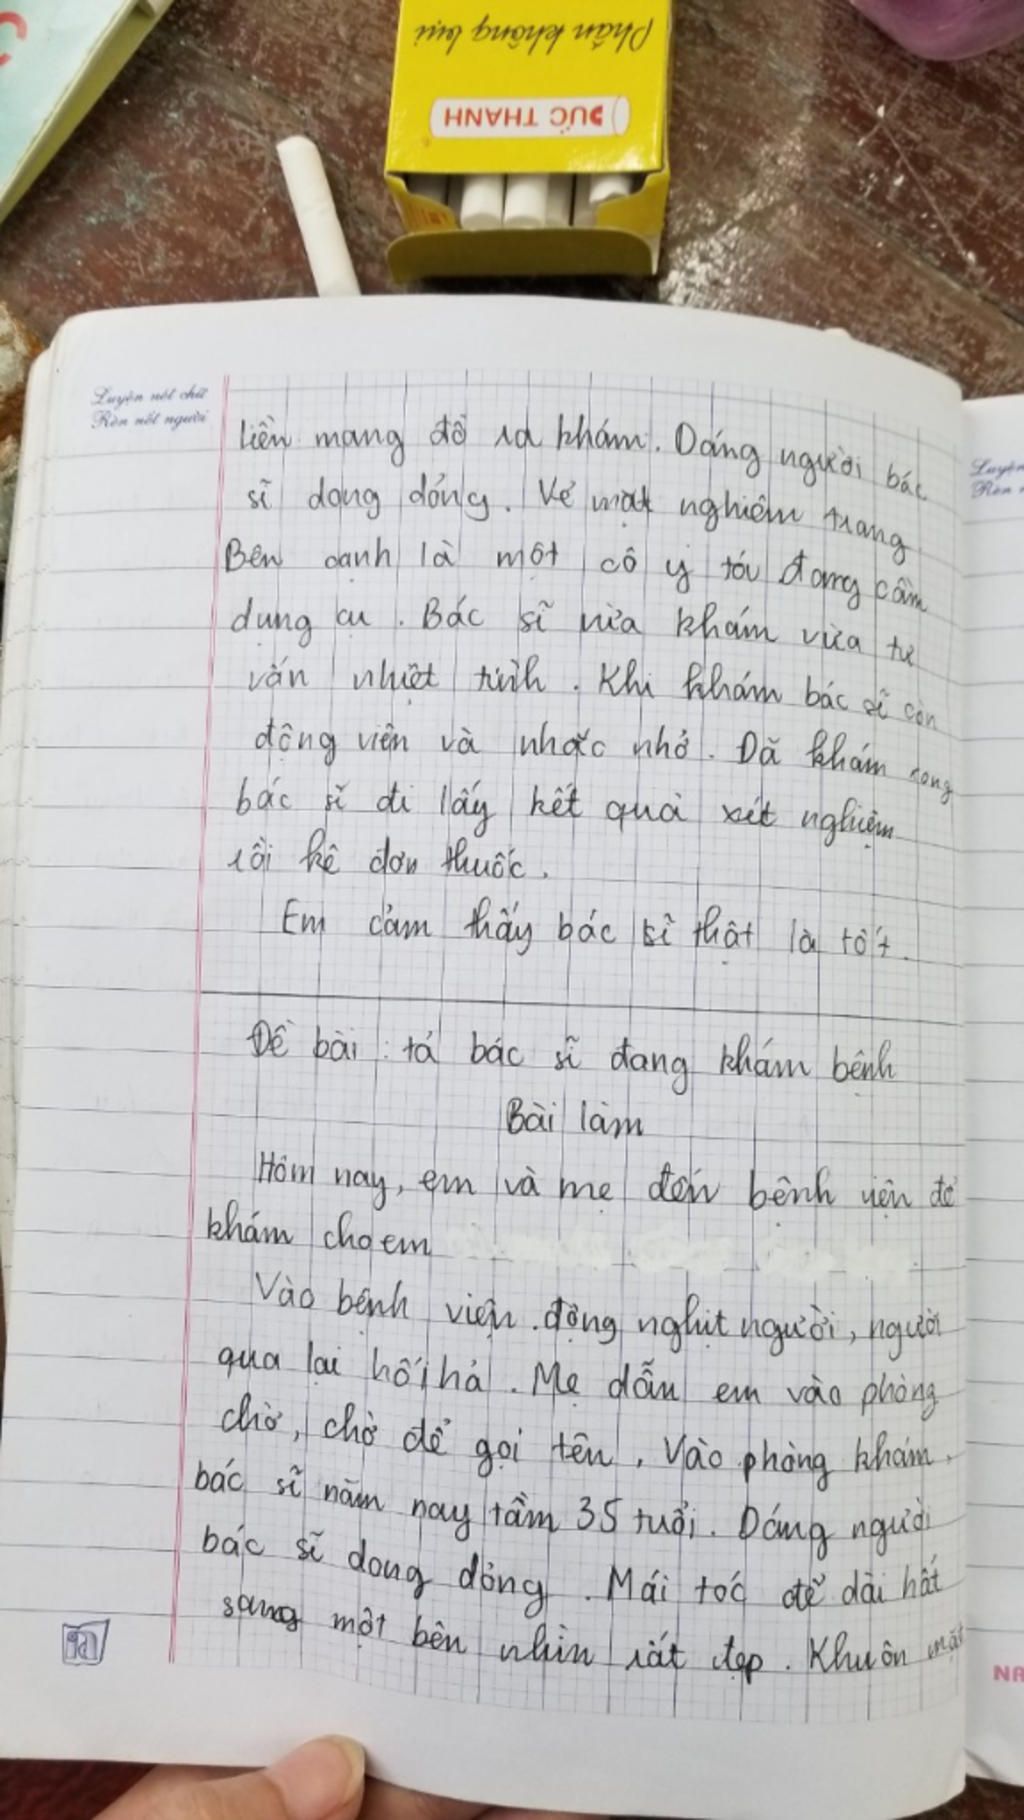 Phấn không bụi
ĐỨC THANH
Luyện nét chữ
Rèn nết người
liền mang đồ ra khám. Dáng người bác
sĩ dong dỏng. Vẻ mặt nghiêm trang
Bên cạnh là một cô y tá đang cầm
dụng cụ. Bác sĩ vừa khám vừa tư
vấn nhiệt tình. Khi khám bác sĩ còn
động viên và nhắc nhở. Đã khám xong
bác sĩ đi lấy kết quả xét nghiệm
rồi kê đơn thuốc.
Em cảm thấy bác sĩ thật là tốt.
Đề bài: tả bác sĩ đang khám bệnh
Bài làm
Hôm nay, em và mẹ đến bệnh viện để
khám cho em
Vào bệnh viện. động nghịt người, người
qua lại hối hả. Mẹ dẫn em vào phòng
chờ, chờ để gọi tên. Vào phòng khám,
bác sĩ năm nay tầm 35 tuổi. Dáng người
bác sĩ dong dỏng. Mái tóc để dài hất
sang một bên nhìn rất đẹp. Khuôn mặt
Luyện
Rèn
NA